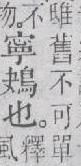 雖舊不可單
不釋
物。寧鴂也。風